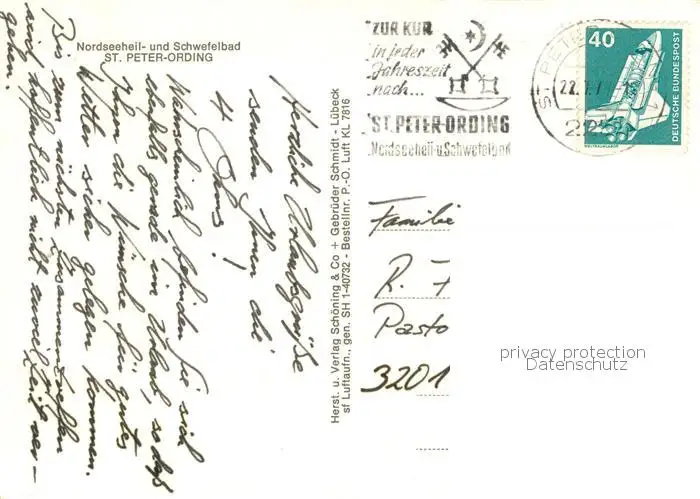 Nordseeheil- und Schwefelbad
ST. PETER-ORDING
Herzliche Urlaubsgrüße
senden Ihnen die
4
Wahrscheinlich befinden Sie sich
ebenfalls gerade im Urlaub, so daß
Ihnen die Wünsche für gutes
Wetter sicher gelegen kommen.
Bis zum nächsten Zusammentreffen
wird hoffentlich nicht zuviel Zeit ver-
gehen.
Herst. u. Verlag Schöning & Co + Gebrüder Schmidt - Lübeck
sf Luftaufn., gen. SH 1-40732 - Bestellnr. P.-O. Luft KL 7816
ZUR KUR
in jeder
Jahreszeit
nach...
ST. PETER-ORDING
Nordseeheil-u.Schwefelbad
ST. PETER
22.
40
DEUTSCHE BUNDESPOST
WELTRAUMLABOR
Familie
R. F
Pasto
3201
privacy protection
Datenschutz